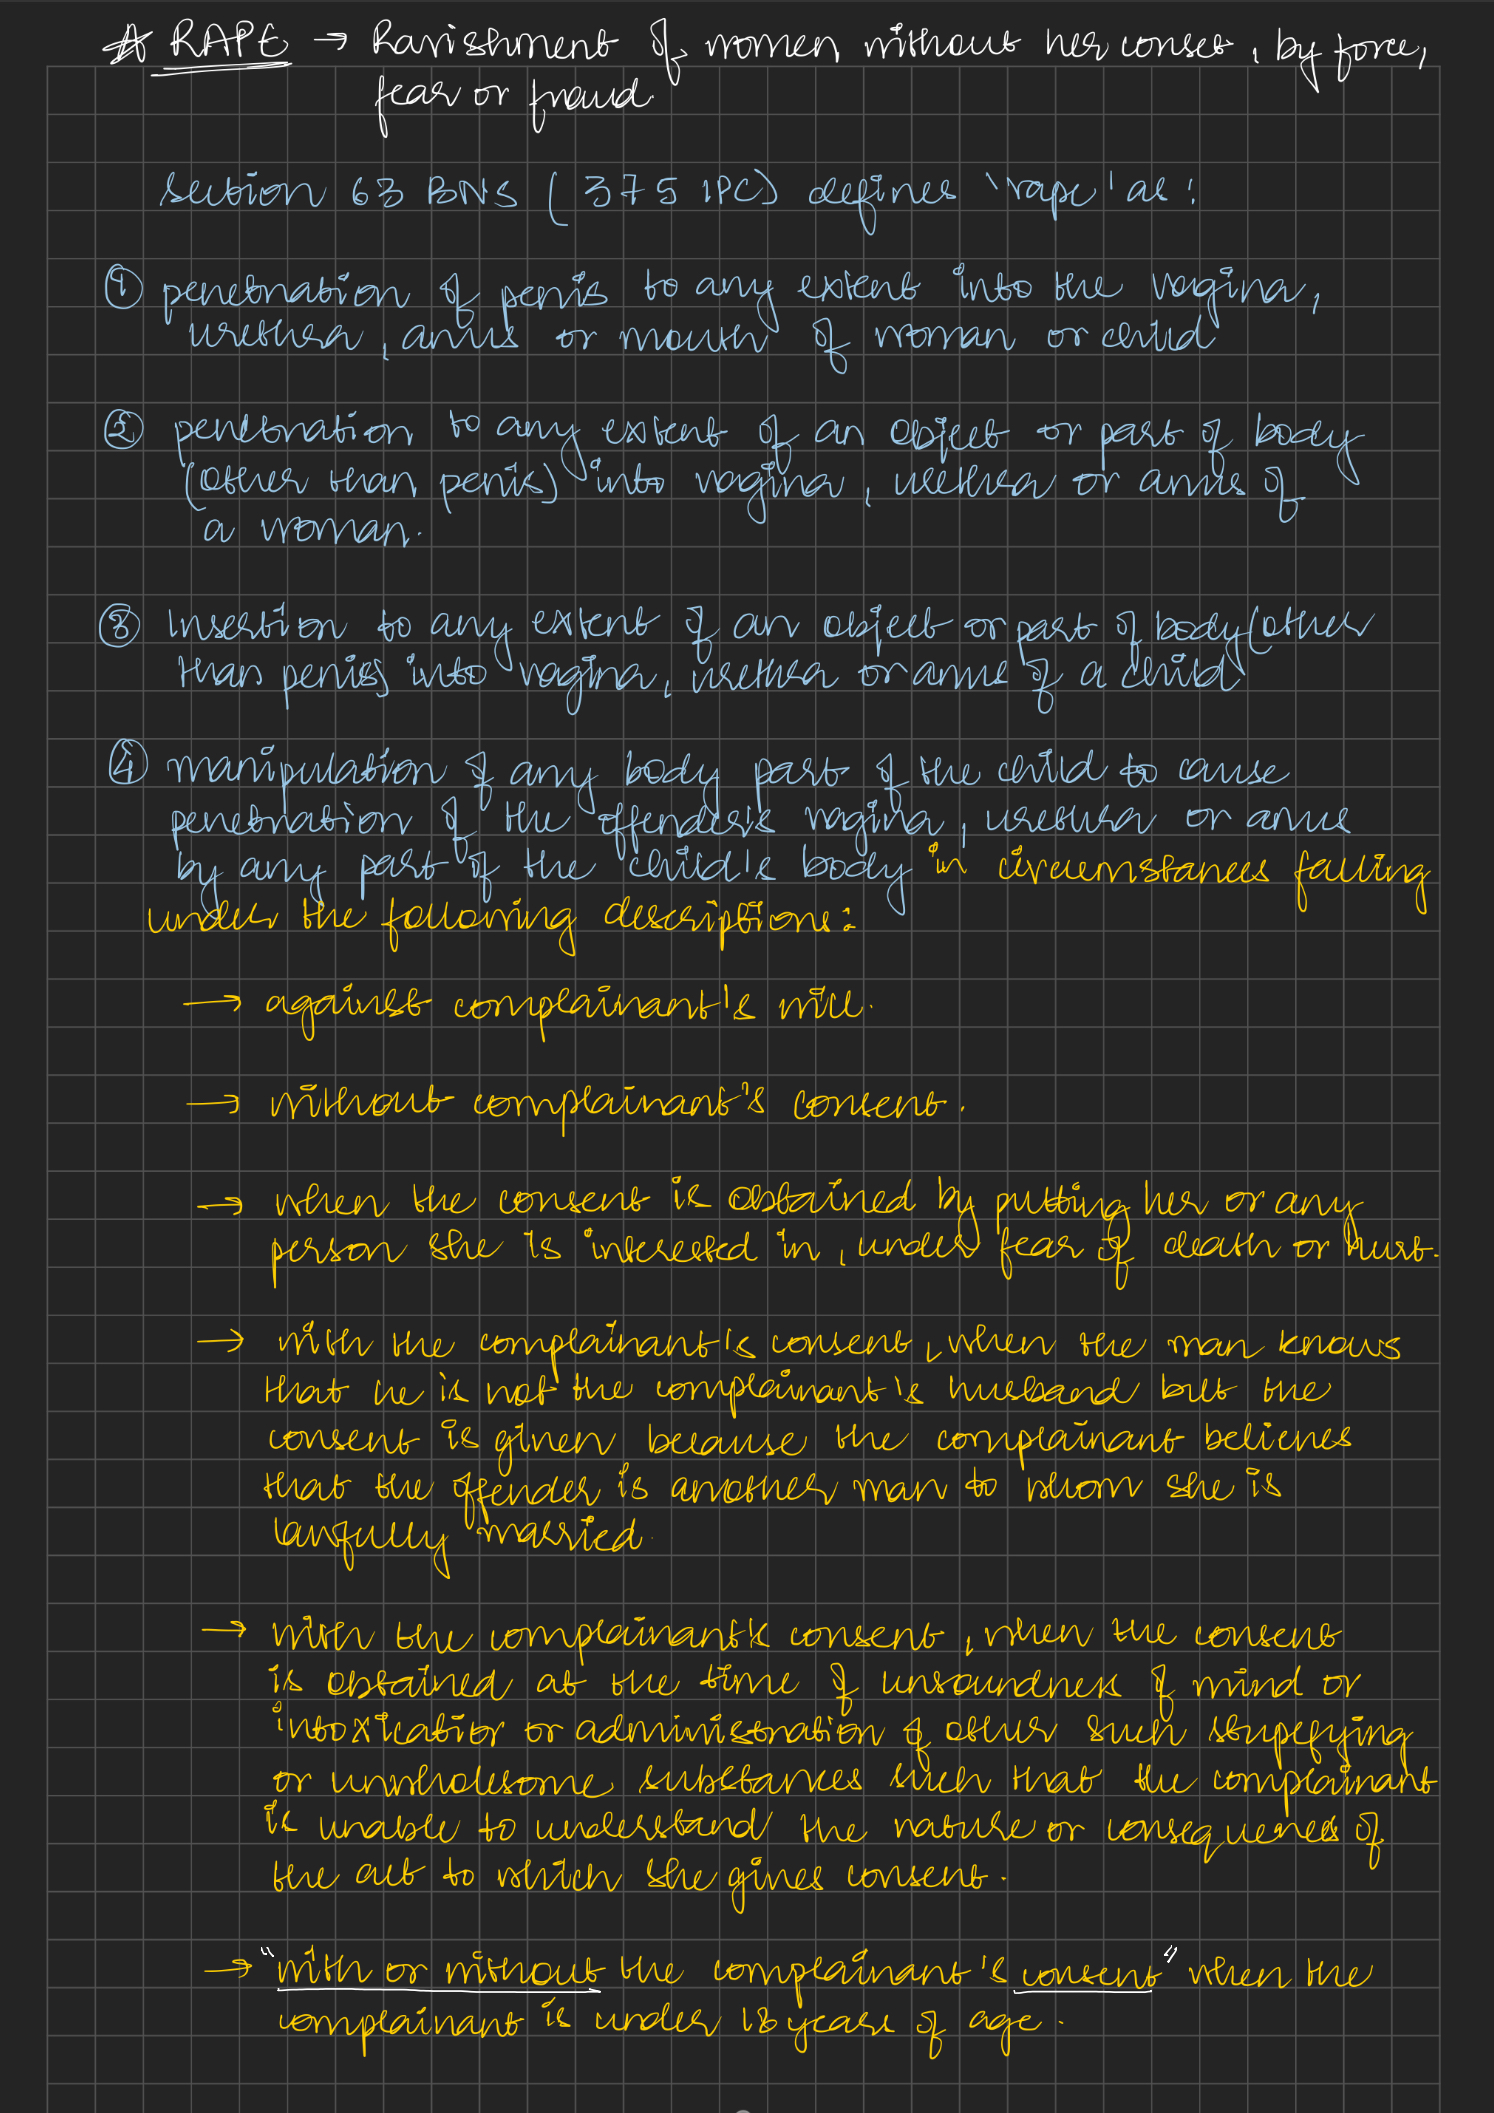 ☆ RAPE → Ravishment of women without her conset, by force,
fear or fraud.
Section 63 BNS (375 IPC) defines 'rape' as:
① penetration of penis to any extent into the vagina,
urethra, anus or mouth of woman or child
② penetration to any extent of an object or part of body
(other than penis) into vagina, urethra or anus of
a woman.
③ Insertion to any extent of an object or part of body (other
than penis) into vagina, urethra or anus of a child
④ manipulation of any body part of the child to cause
penetration of the offender's vagina, urethra or anus
by any part of the child's body in circumstances falling
under the following descriptions:
→ against complainant's will.
→ without complainant's consent.
→ when the consent is obtained by putting her or any
person she is interested in, under fear of death or hurt.
→ with the complainant's consent, when the man knows
that he is not the complainant's husband but the
consent is given because the complainant believes
that the offender is another man to whom she is
lawfully married.
→ with the complainant's consent, when the consent
is obtained at the time of unsoundness of mind or
intoxicatior or administration of other such stupefying
or unwholesome substances such that the complainant
is unable to understand the nature or consequences of
the act to which she gives consent.
→ "with or without the complainant's consent" when the
complainant is under 18 years of age.